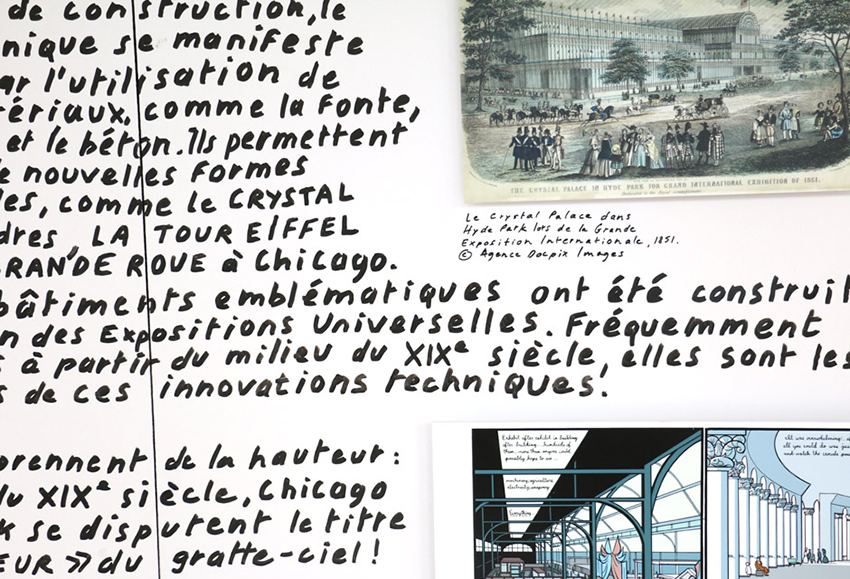 de construction, le
nique se manifeste
ar l'utilisation de
ériaux, comme la fonte,
et le béton. Ils permettent
e nouvelles formes
les, comme le CRYSTAL
dres, LA TOUR EIFFEL
RANDE ROUE à Chicago.
bâtiments emblématiques ont été construit
n des Expositions Universelles. Fréquemment
s à partir du milieu du XIXe siècle, elles sont les
s de ces innovations techniques.
prennent de la hauteur :
du XIXe siècle, Chicago
k se disputent le titre
EUR » du gratte-ciel !
THE CRYSTAL PALACE IN HYDE PARK FOR GRAND INTERNATIONAL EXHIBITION OF 1851.
Le Crystal Palace dans
Hyde Park lors de la Grande
Exposition Internationale, 1851.
© Agence Docpix Images
Exhibit after exhibit in building
after building... hundreds of
them... more than anyone could
possibly hope to see...
machinery, agriculture,
electricity,
Everything.
It was overwhelming;
all you could do was
and watch the crowds